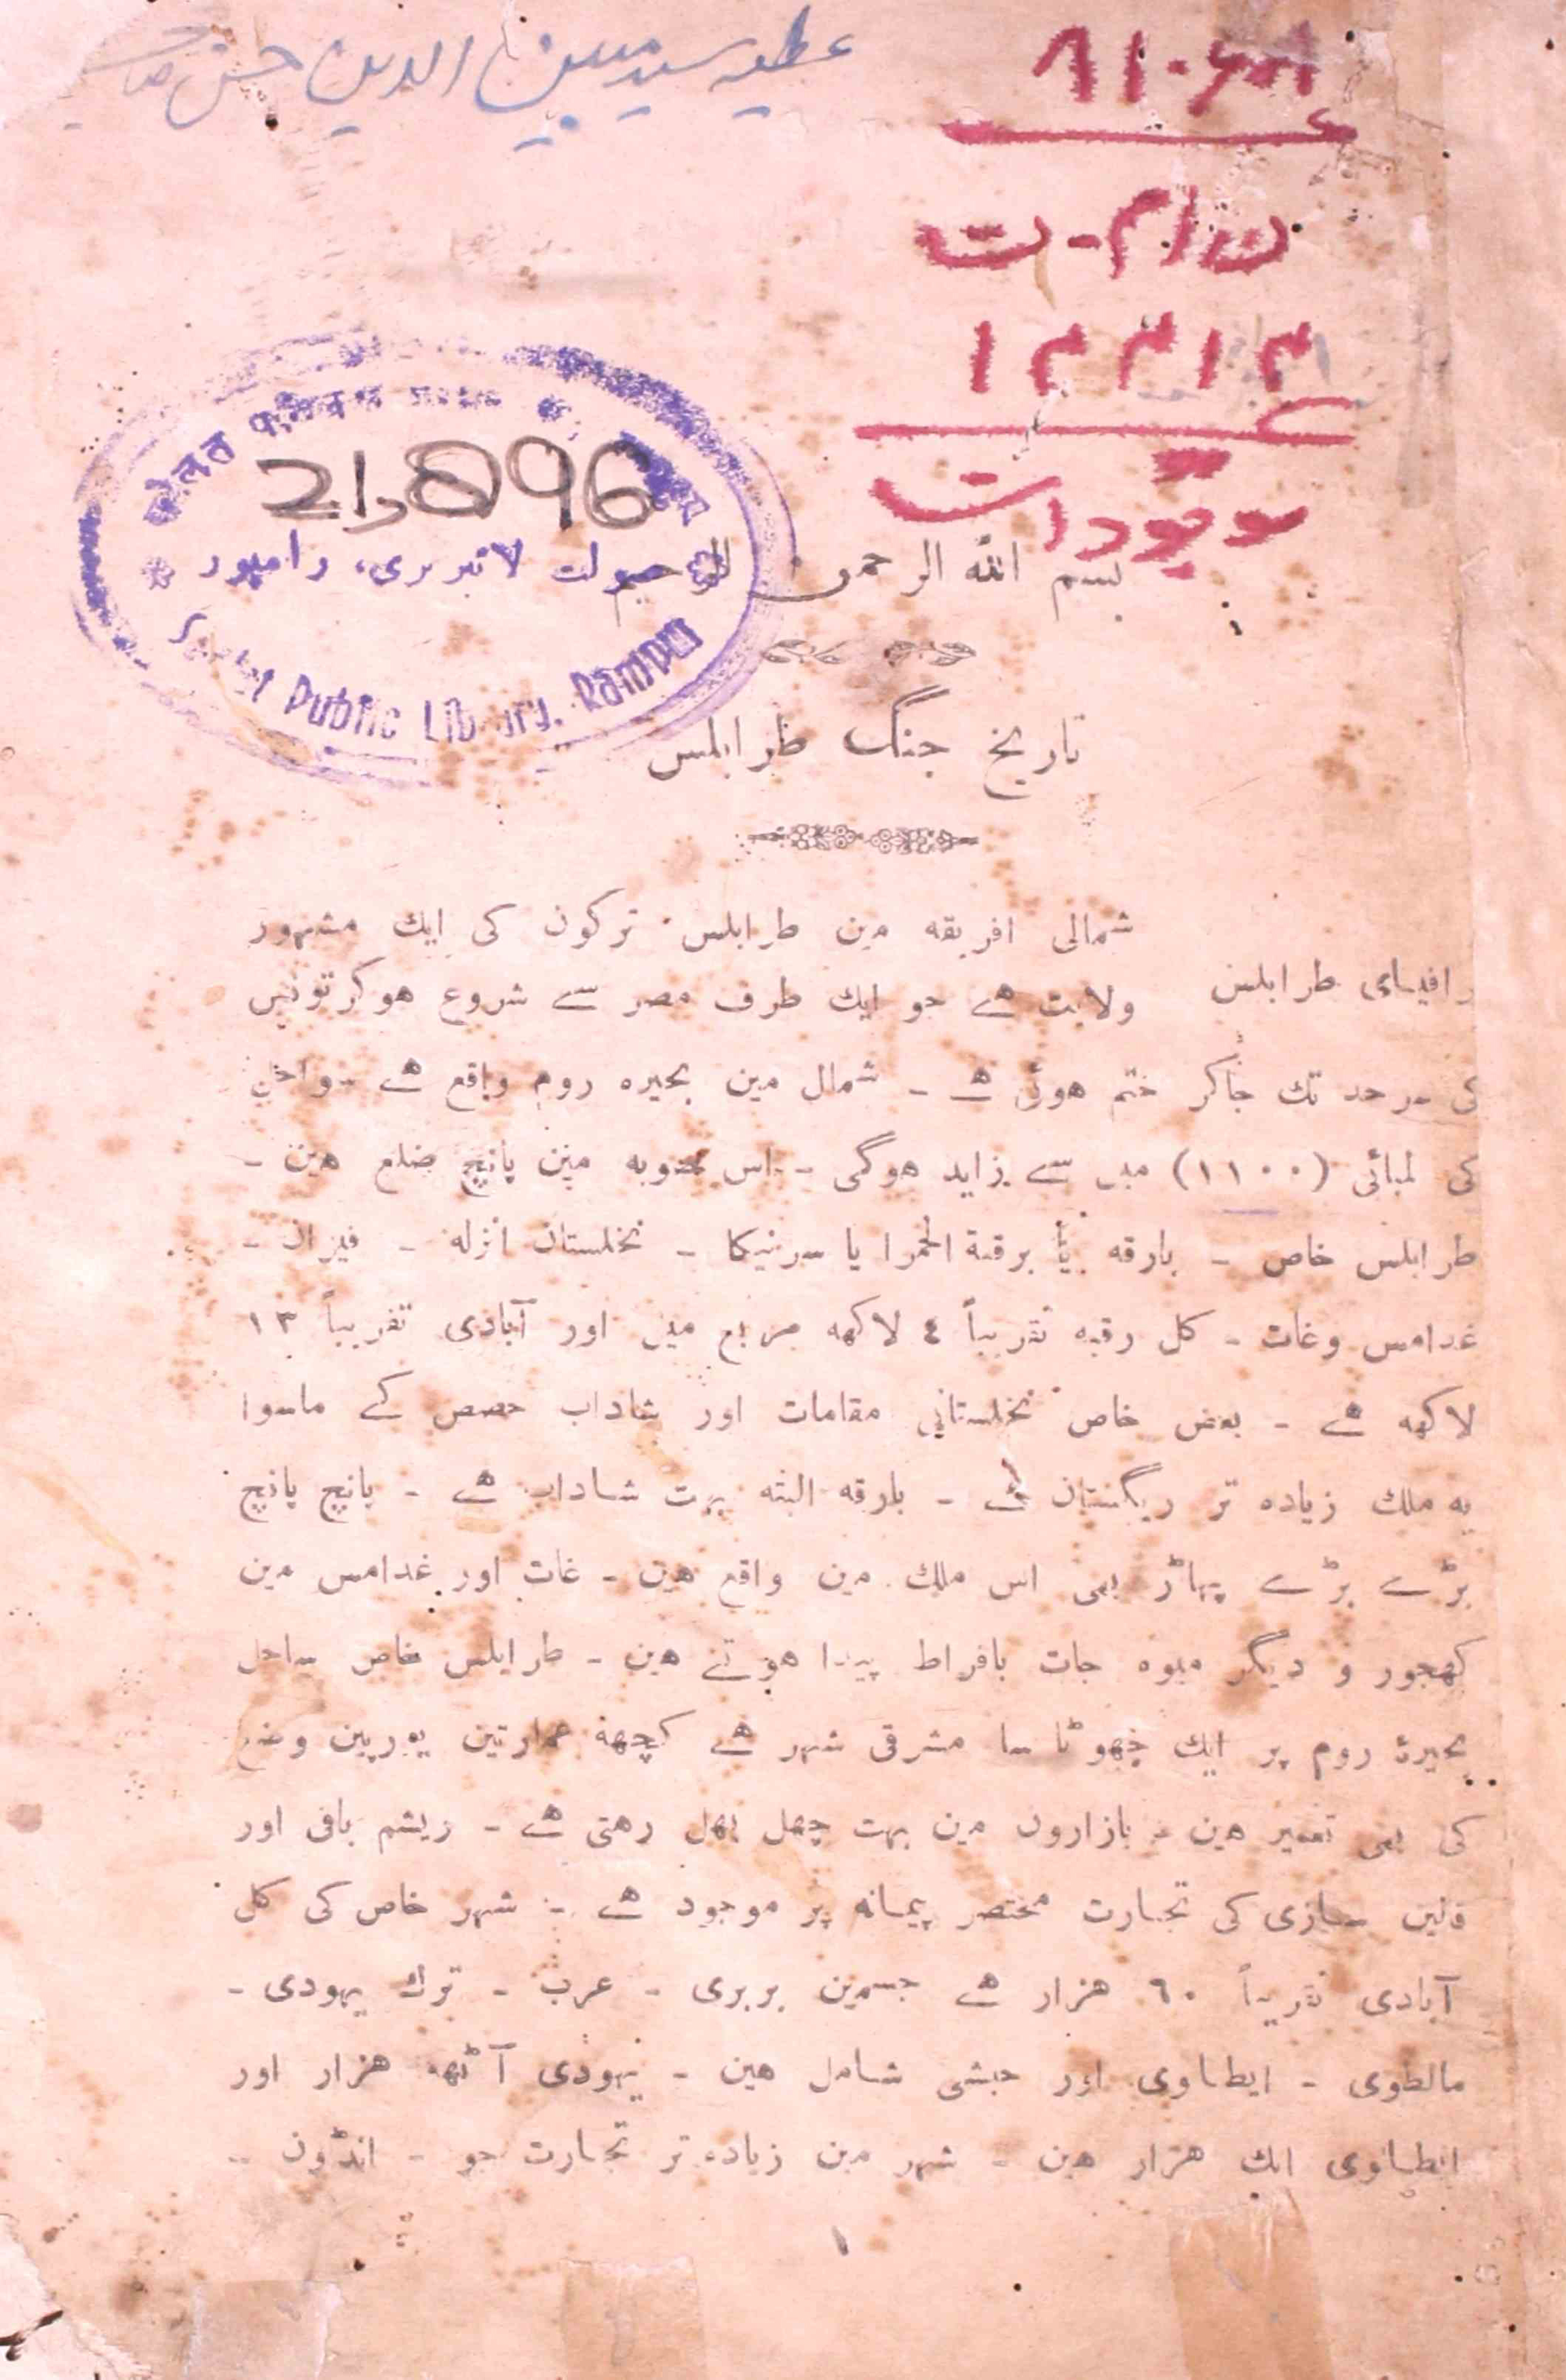 عطیہ سید مبین الدین حسن صاحب
موجودات
21,896
صولت لائبریری، رامپور
Public Library, Rampur
بسم اللہ الرحمن الرحیم
تاریخ جنگ طرابلس
شمالی افریقہ مین طرابلس ترکون کی ایک مشہور
رافیہای طرابلس
ولایت ھے جو ایک طرف مصر سے شروع ھوکر تونس
کی سرحد تک جاکر ختم ھوئی ھے ـ شمال مین بحیرہ روم واقع ھے سواحل
کی لمبائی (۱۱۰۰) میل سے زاید ھوگی ـ اس صوبہ مین پانچ ضلع ھین ـ
طرابلس خاص ـ بارقہ یا برقۃ الحمرا یا سرنیکا ـ نخلستان انزلہ ـ فیزان ـ
غدامس وغات ـ کل رقبہ تقریباً ٤ لاکھہ مربع میل اور آبادی تقریباً ۱۳
لاکھہ ھے ـ بعض خاص نخلستانی مقامات اور شاداب حصص کے ماسوا
یہ ملک زیادہ تر ریگستان ھے ـ بارقہ البتہ بہت شاداب ھے ـ پانچ پانچ
بڑے بڑے پہاڑ بھی اس ملک مین واقع ھین ـ غات اور غدامس مین
کھجور و دیگر میوہ جات بافراط پیدا ھوتے ھین ـ طرابلس خاص ساحل
بحیرۂ روم پر ایک چھوٹا سا مشرقی شہر ھے کچھہ عمارتین یورپین وضع
کی بھی تعمیر ھین ـ بازارون مین بہت چھل پھل رھتی ھے ـ ریشم بافی اور
قالین سازی کی تجارت مختصر پیمانہ پر موجود ھے ـ شہر خاص کی کل
آبادی تقریباً ٦۰ ھزار ھے جسمین بربری ـ عرب ـ ترک یہودی ـ
مالطوی ـ ایطاوی اور حبشی شامل ھین ـ یہودی آٹھہ ھزار اور
ایطاوی ایک ھزار ھین ـ شہر مین زیادہ تر تجارت جو ـ انڈون ـ
۱